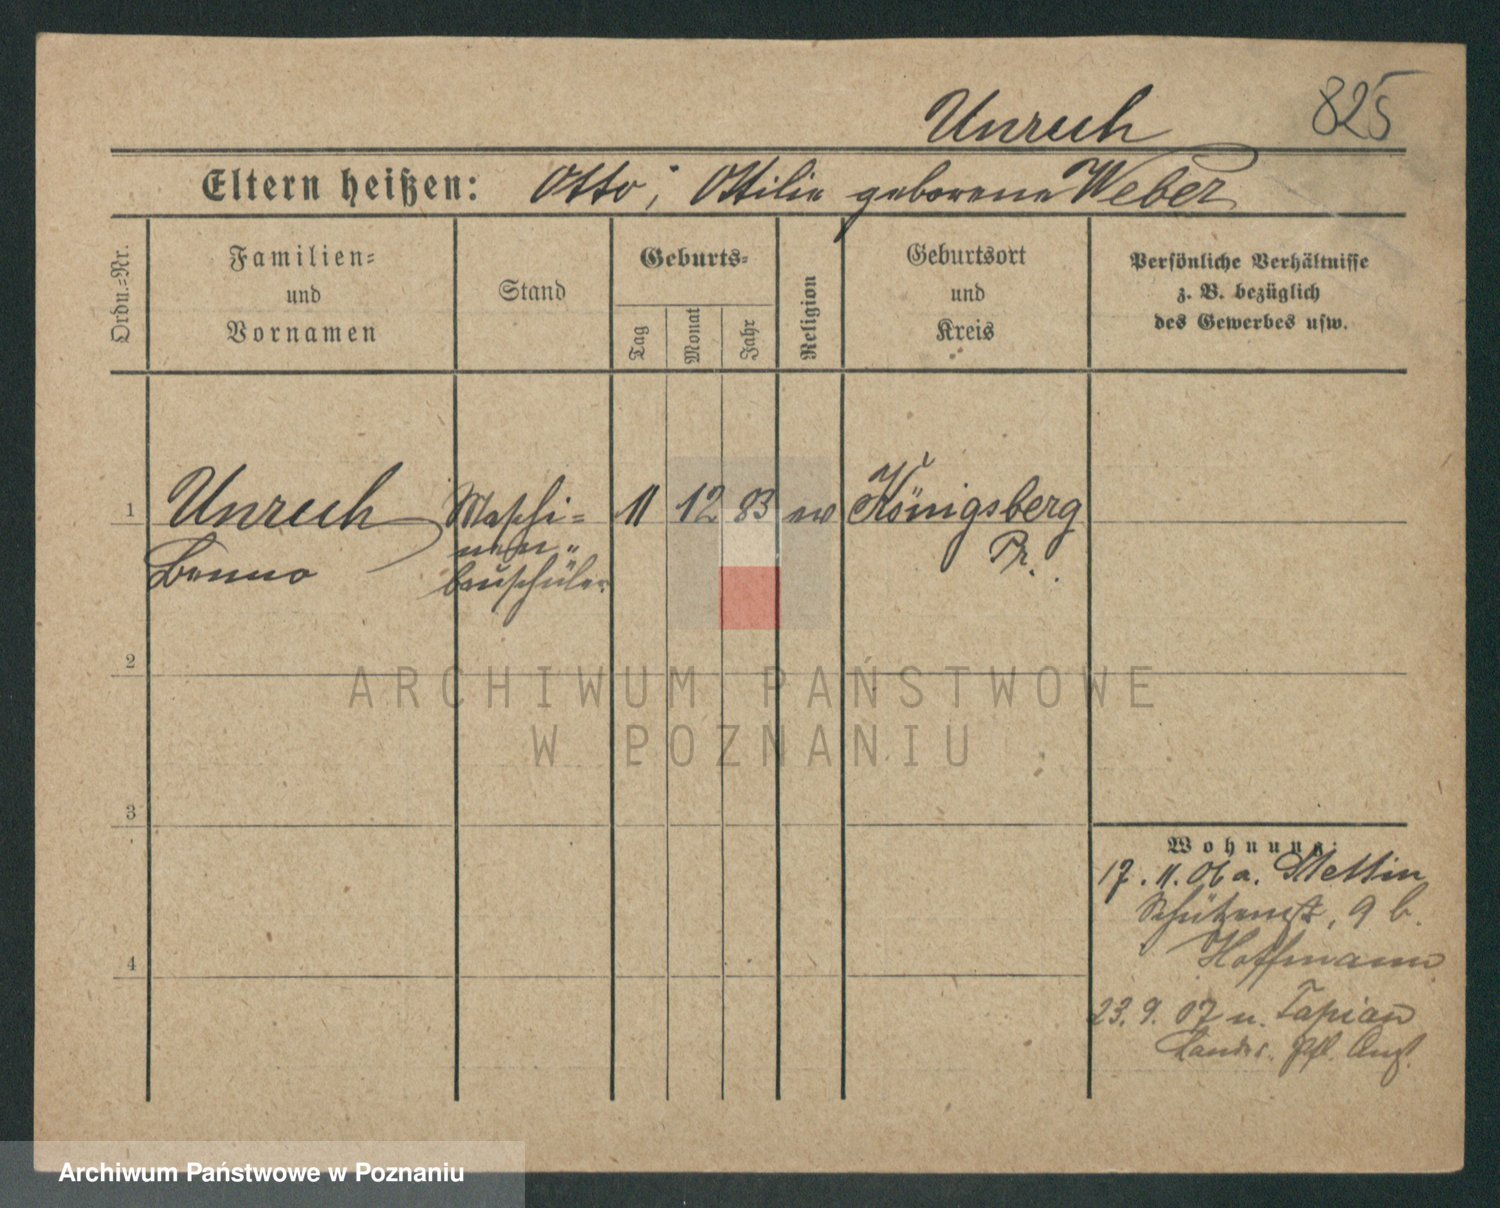 825
Unruh
Eltern heißen: Otto, Ottilie geborene Weber
Ordn.-Nr.
Familien-
und
Vornamen
Stand
Geburts-
Tag
Monat
Jahr
Religion
Geburtsort
und
Kreis
Persönliche Verhältnisse
z. B. bezüglich
des Gewerbes usw.
1 Unruh Maschi= 11 12 83 ev Königsberg
Benno nen„ Pr.
bauschüler
2
3
4
Wohnung:
17. 11. 06 a. Stettin
Schützenstr. 9 b.
Hoffmann
23. 9. 07 n. Tapiau
Landes. Pfl. Anst.
ARCHIWUM PAŃSTWOWE
W POZNANIU
Archiwum Państwowe w Poznaniu